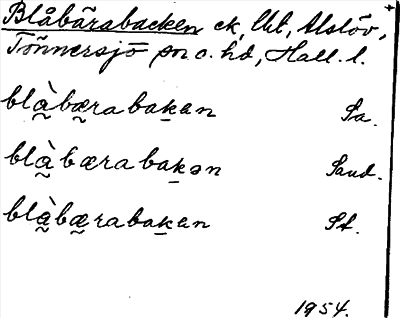 Blåbärsbacken ck, lht, Alslöv,
Tönnersjö sn o. hd, Hall. l.
blà̰bæ̰rabaḵan Sa.
blà̰bærabaḵən Sand.
blà̰bæ̰rabaḵan St.
1954.